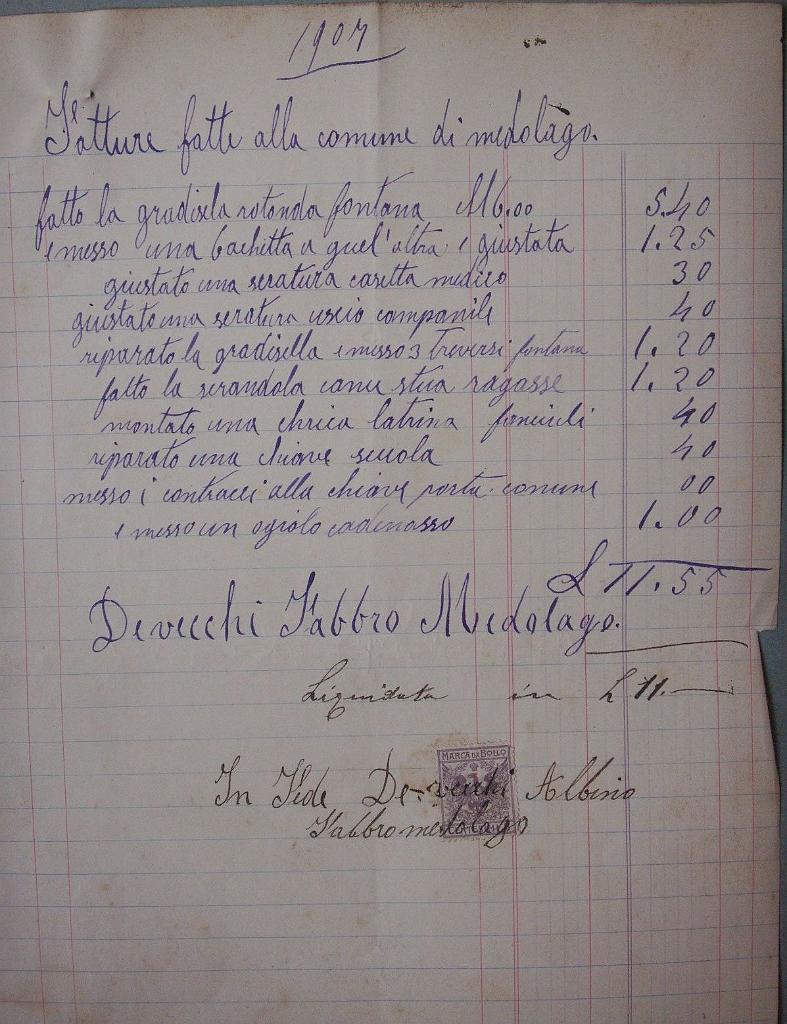 1907
Fatture fatte alla comune di medolago.
fatto la gradisela rotonda fontana M6.00 5.40
e messo una bachetta a quel'altra e giustata 1.25
giustato una seratura casetta medico 30
giustato una seratura uscio campanile 40
riparato la gradisella e messo 3 treversi fontana 1.20
fatto la serandola stua ragasse 1.20
montato una latrina 40
riparato una chiave scuola 40
messo i alla chiave porta comune 00
e messo un ogiolo cadenasso 1.00
£ 11.55
Devecchi Fabbro Medolago.
Liquidata in £ 11.—
MARCA DA BOLLO
In Fede De-vecchi Albino
Fabbro medolago